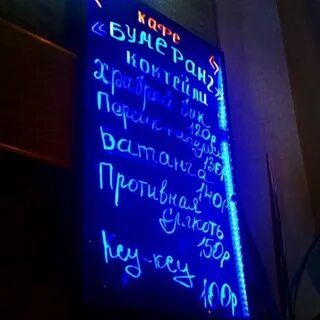 кафе
"Бумеранг"
коктейли
Храбрый бык
120р
Персик
130р
Батанга
140р
Противная
слякоть
150р
Кеу-кеу
100р